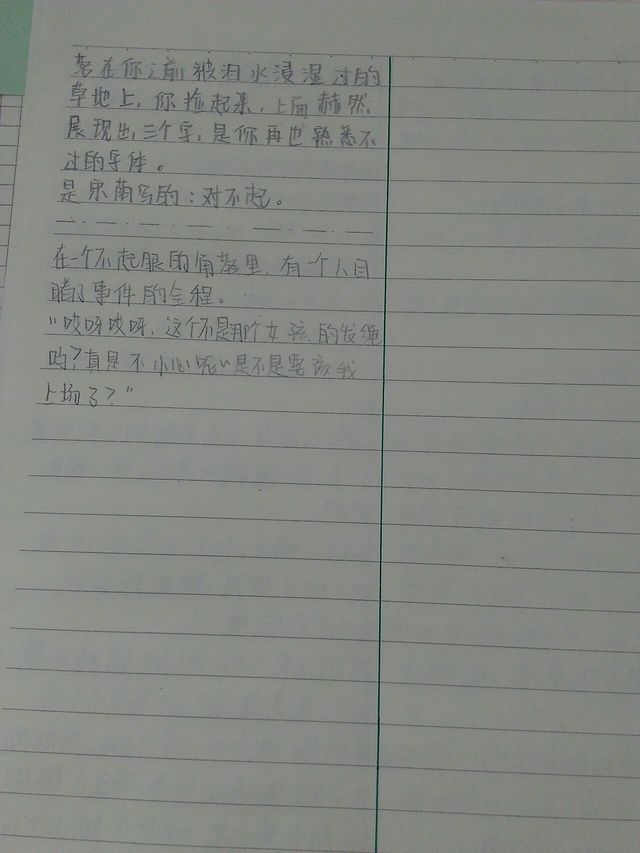 落在你之前被泪水浸湿过的
草地上,你捡起来,上面赫然
展现出三个字,是你再也熟悉不
过的字体。
是东南写的:对不起。
在一个不起眼的角落里,有一个人目
睹了事件的全程。
“哎呀哎呀,这个不是那个女孩的发绳
吗?真是不小心呢”是不是要该我
上场了?”